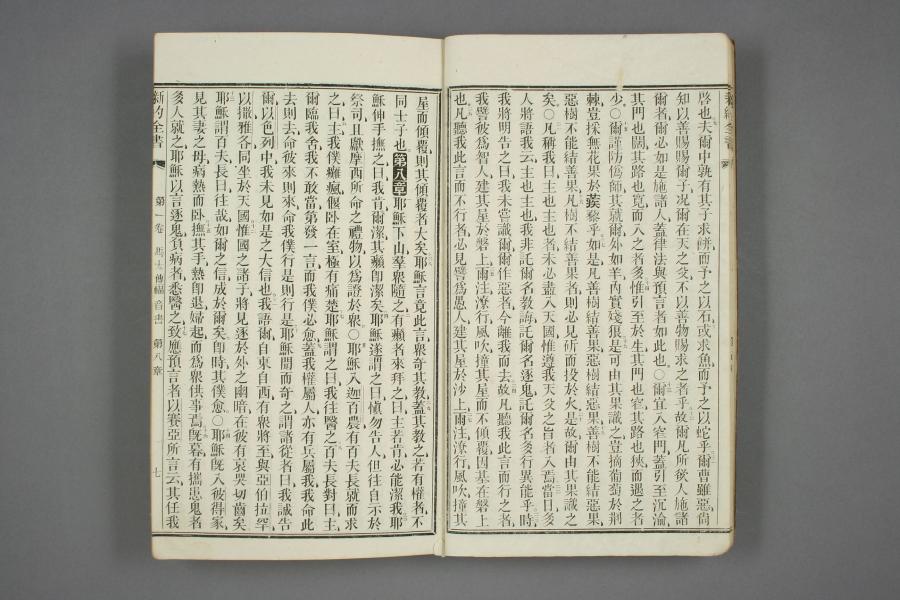 新約全書
啓也夫爾中孰有其子求餅而予之以石或求魚而予之以蛇乎爾曹雖惡尚
知以善賜賜爾子况爾在天之父不以善物賜求之者乎故爾凡所欲人施諸
爾者爾必如是施諸人蓋律法與預言者如此也○爾宜入窄門蓋引至沉淪
其門也闊其路也寬而入之者多惟引至於生其門也窄其路也狹而遇之者
少○爾謹防僞師其就爾外如羊內實殘狼是可由其果識之豈摘葡萄於荆
棘豈採無花果於蒺藜乎如是凡善樹結善果惡樹結惡果善樹不能結惡果
惡樹不能結善果凡樹不結善果者則必見斫而投於火是故爾由其果識之
矣○凡稱我曰主也主也者未必盡入天國惟遵我天父之旨者入焉當日多
人將語我云主也主也我非託爾名教誨託爾名逐鬼託爾名多行異能乎時
我將明告之曰我未嘗識爾爾作惡者今離我而去故凡聽我此言而行之者
我譬彼爲智人建其屋於磐上雨注潦行風吹撞其屋而不傾覆因基在磐上
也凡聽我此言而不行者必見譬爲愚人建其屋於沙上雨注潦行風吹撞其
屋而傾覆則其傾覆者大矣耶穌言竟此言衆奇其教蓋其教之若有權者不
同士子也第八章耶穌下山羣衆隨之有癩者來拜之曰主若肯必能潔我耶
穌伸手撫之曰我肯爾潔其癩卽潔矣耶穌遂謂之曰愼勿告人但往自示於
祭司且獻摩西所命之禮物以爲證於衆○耶穌入迦百農有百夫長就而求
之曰主我僕癱瘋偃卧在室極有痛楚耶穌謂之曰我往醫之百夫長對曰主
爾臨我舍我不敢當第發一言而我僕必愈蓋我權屬人亦有兵屬我我命此
去則去命彼來則來命我僕行是則行是耶穌聞而奇之謂諸從者曰我誠告
爾以色列中我未見如是之大信也我語爾自東自西有衆將至與亞伯拉罕
以撒雅各同坐於天國惟國之諸子將見逐於外之幽暗在彼有哀哭切齒矣
耶穌謂百夫長曰往哉如爾之信成於爾矣卽時其僕愈○耶穌旣入彼得家
見其妻之母病熱而卧撫其手熱卽退婦起而爲衆供事焉旣暮有攜患鬼者
多人就之耶穌以言逐鬼負病者悉醫之致應預言者以賽亞所言云其任我
新約全書 第一卷 馬太傳福音書 第八章 七